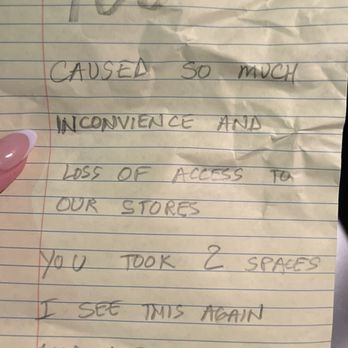 CAUSED SO MUCH
INCONVIENCE AND
LOSS OF ACCESS TO
OUR STORES
YOU TOOK 2 SPACES
I SEE THIS AGAIN